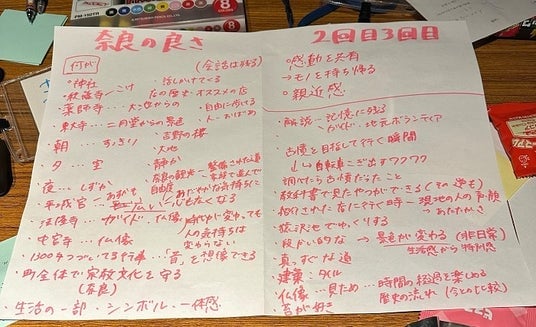 奈良の良さ
何が
(会話は残る)
・神社
・話しかけてくる
・秋篠寺…こけ
店の歴史・オススメの店
・薬師寺…大池からの
・自由に歩ける
・東大寺…二月堂からの景色
・吉野の桜
・朝…すっきり
・大地
・夕…空
・静か
・夜…しずか
・奈良の観光…整備された道
自由度
・平城宮…あおにも
広い
心も広くなる
・法隆寺…ガイド、仏像
時代が変わっても
人の気持ちは
変わらない
・中宮寺…仏像
・1300年つづいてる行事…「音」を想像できる
・町全体で家族文化を守る
(奈良)
・生活の一部・シンボル・一体感
2回目3回目
○感動を共有
→モノを持ち帰る
○親近感
・解説…記憶に残る
ガイド・地元ボランティア
・古墳を目指して行く瞬間
↓自転車こぎ出すワクワク
調べたら古墳だったこと
・教科書で見たやつがでてくる(その逆も)
・紹介された店に行く時…現地の人の声・顔
→あたたかさ
・猿沢池でゆっくりする
・段かい的な→景色が変わる(非日常)
生活感から特別感
・真っすぐな道
・建築・タイル
・仏像…見ため…時間の経過を楽しめる
歴史の流れ(今との比較)
・苔が好き